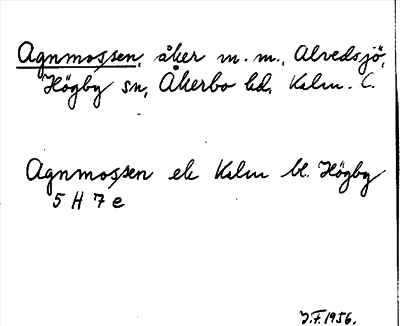 Agnmossen, åker m.m., Alvedsjö,
Högby sn, Åkerbo hd, Kalm. l.
Agnmossen ek Kalm bl. Högby
5 H 7 e
J.F. 1956.